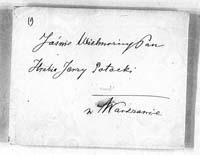 19
Jaśnie Wielmożny Pan
Hrabia Jerzy Potocki
w Warszawie